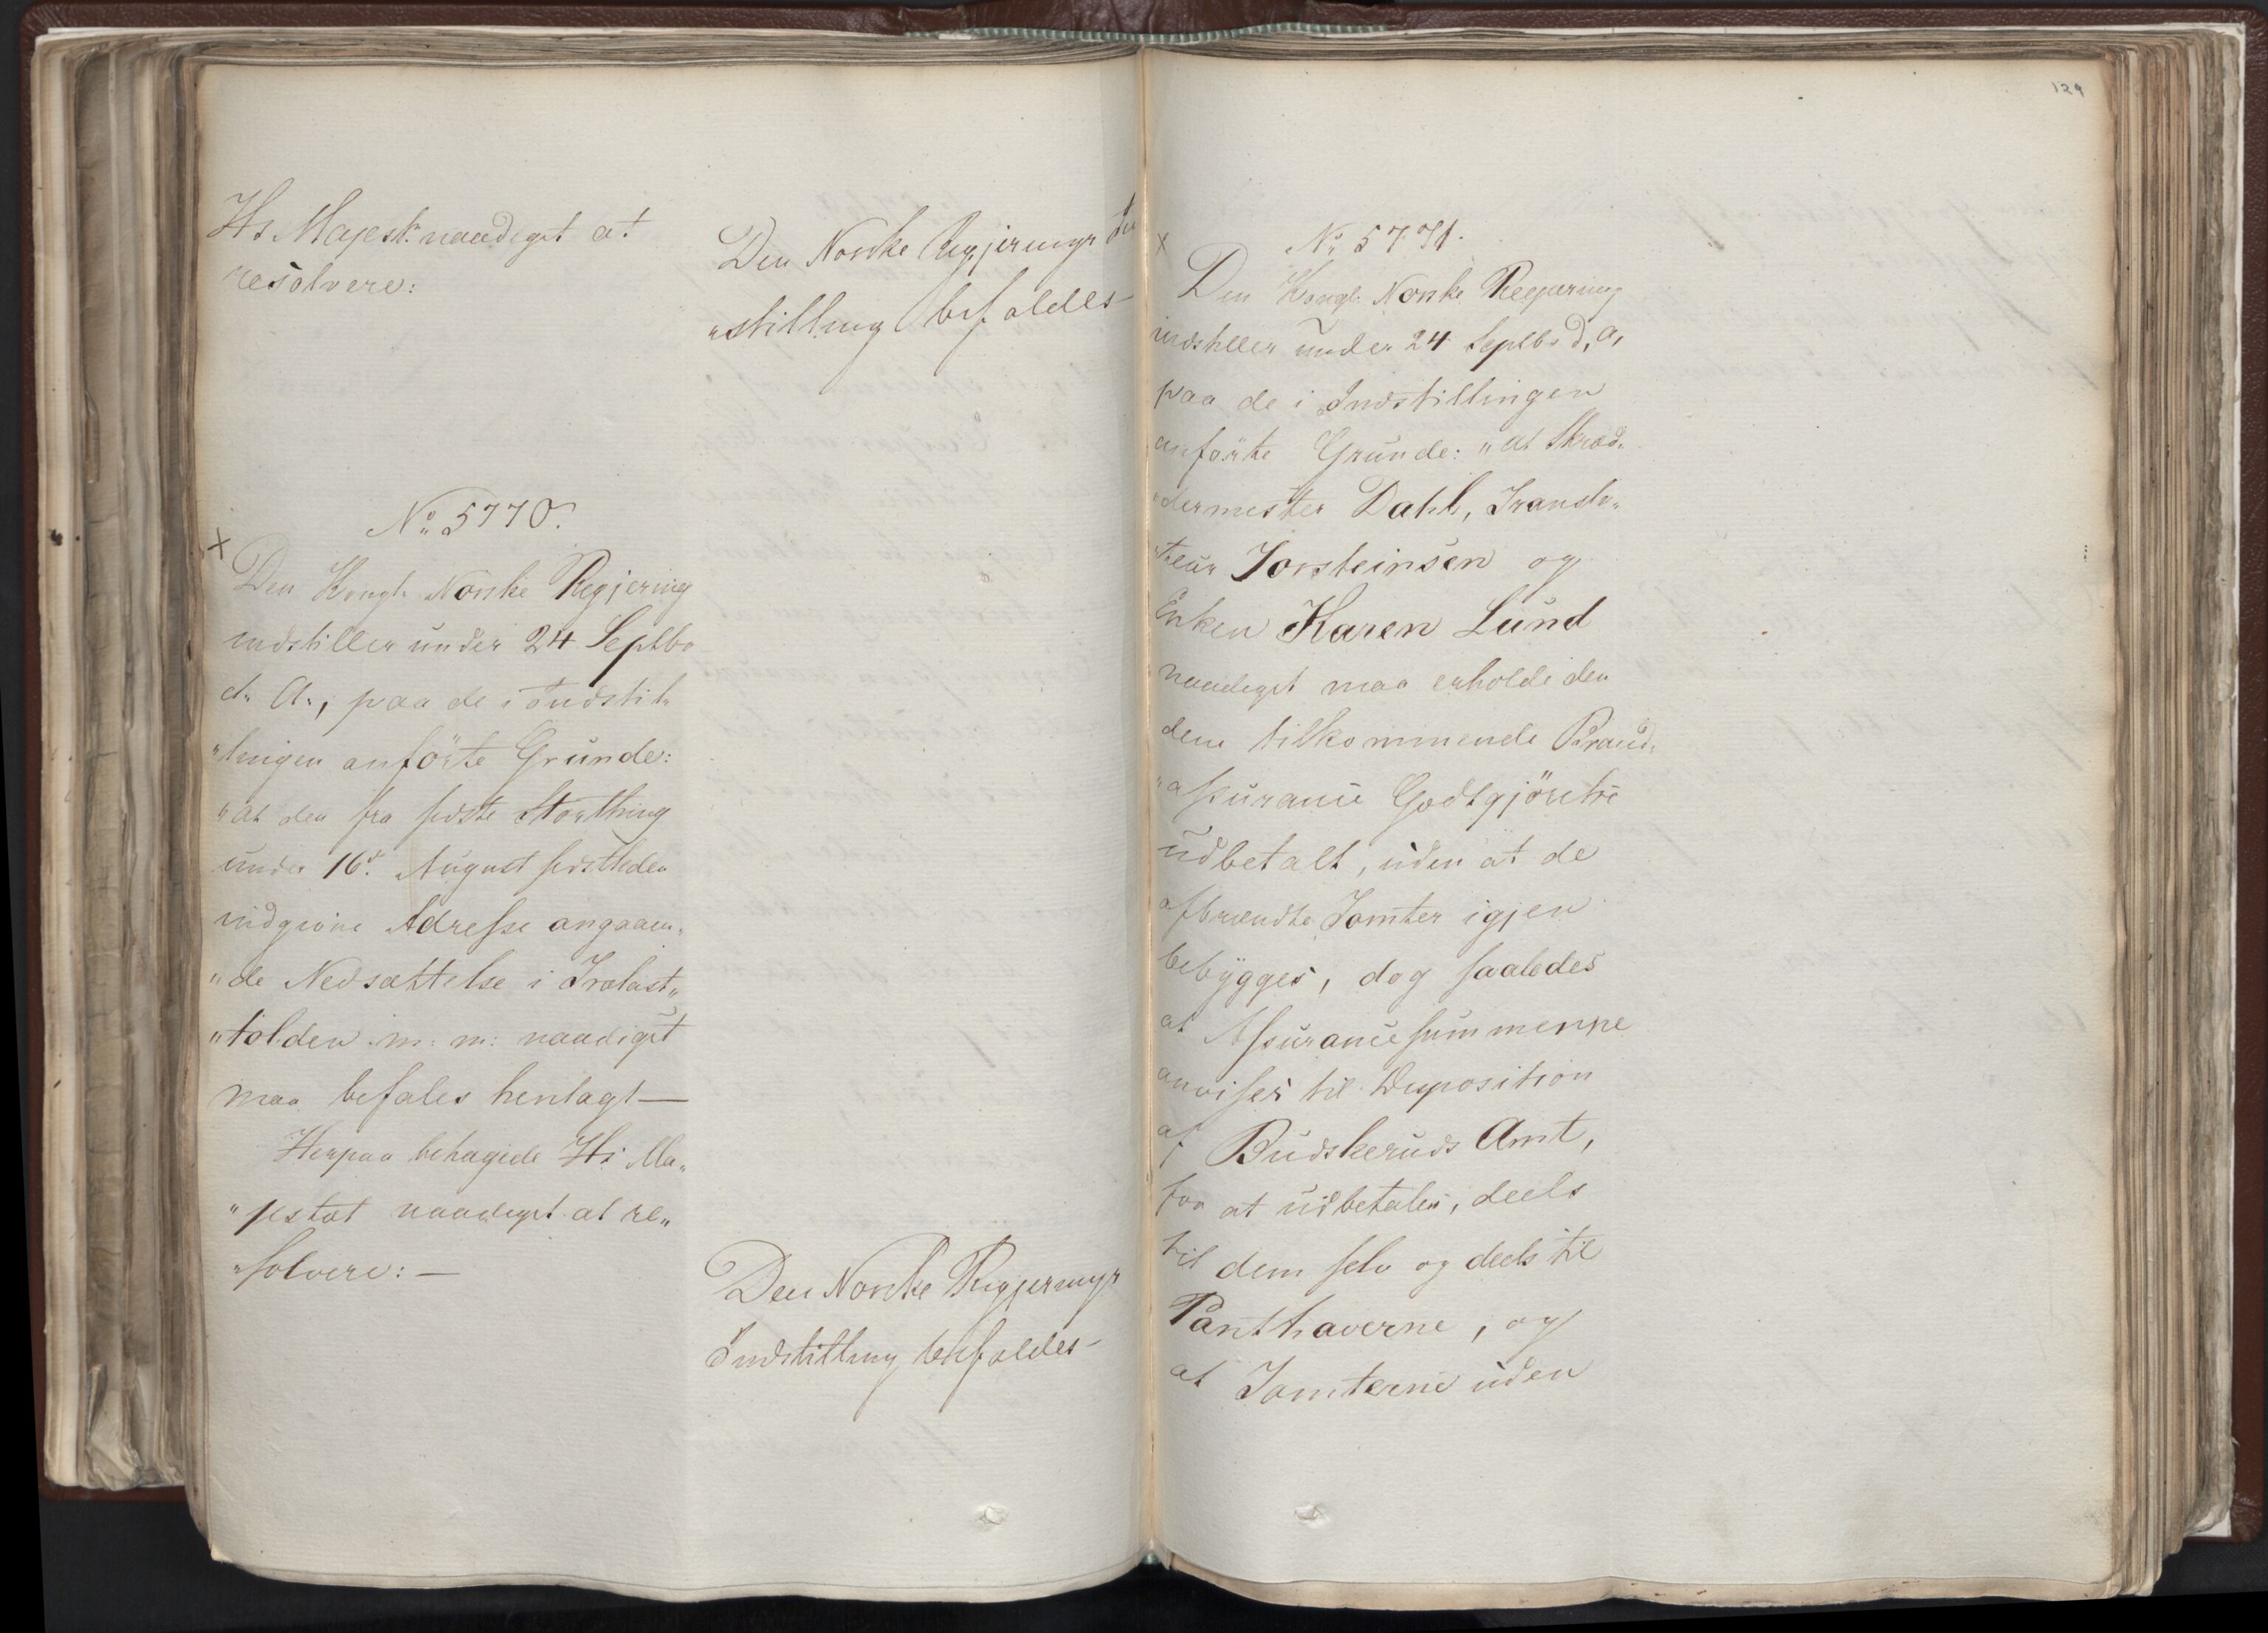 Hs Majest: naadigst at
resolvere:
Den Norske Regjerings In
„stilling bifaldes –
No 5770.
x
Den Kongl. Norske Regjering
indstiller under 24 Septbr
d. A., paa de i Indstil„
„lingen anförte Grunde:
„at den fra sidste Storthing
under 16d. August sidstleden
indgivne Adresse angaaen„
„de Nedsættelse i Trælast„
„tolden m: m: naadigst
maa befales henlagt —
Herpaa behagede Hs Ma„
„jestæt naadigst at re„
„solvere: —
Den Norske Regjerings
Indstilling bifaldes –
129
x
No 5771.
Den Kongl. Norske Regjering
indstiller under 24 Septbr d. A.
paa de i Indstillingen
anförte Grunde: „at Skræd„
„dermester Dahl, Transla„
„teur Torsteinsen og
Enken Karen Lund
naadigst maa erholde den
dem tilkommende Brand„
„assurance Godtgjörelse
udbetalt, uden at de
afbrændte Tomter igjen
bebygges, dog saaledes
at Assurancesummerne
anvises til Disposition
af Budskeruds Amt,
for at udbetales, deels
til dem selv og deels til
Panthaverne, og
at Tomterne uden